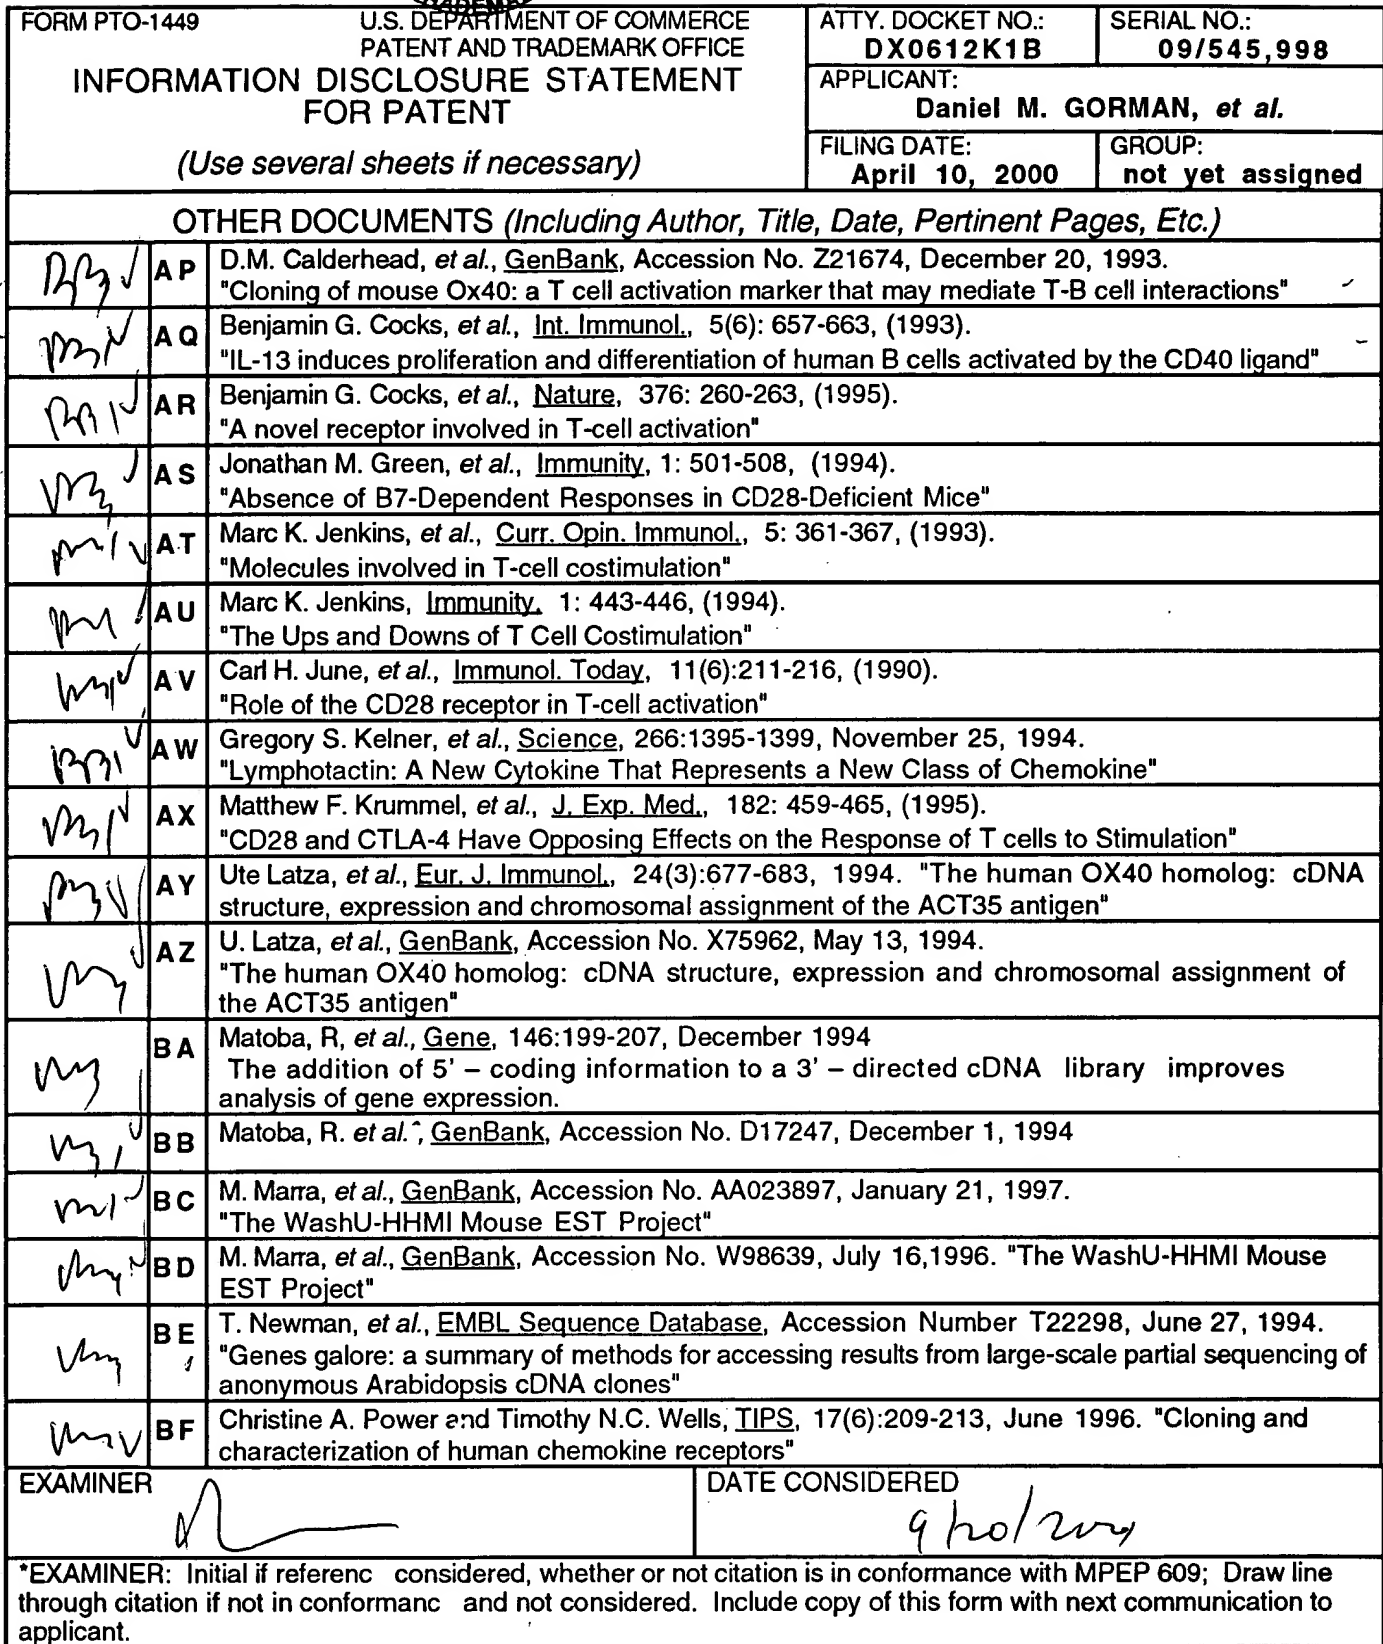 TRADEMARK
FORM PTO-1449
U.S. DEPARTMENT OF COMMERCE
PATENT AND TRADEMARK OFFICE
INFORMATION DISCLOSURE STATEMENT
FOR PATENT
(Use several sheets if necessary)
ATTY. DOCKET NO.:
DX0612K1B
SERIAL NO.:
09/545,998
APPLICANT:
Daniel M. GORMAN, et al.
FILING DATE:
April 10, 2000
GROUP:
not yet assigned
OTHER DOCUMENTS (Including Author, Title, Date, Pertinent Pages, Etc.)
AP
D.M. Calderhead, et al., GenBank, Accession No. Z21674, December 20, 1993.
"Cloning of mouse Ox40: a T cell activation marker that may mediate T-B cell interactions"
AQ
Benjamin G. Cocks, et al., Int. Immunol., 5(6): 657-663, (1993).
"IL-13 induces proliferation and differentiation of human B cells activated by the CD40 ligand"
AR
Benjamin G. Cocks, et al., Nature, 376: 260-263, (1995).
"A novel receptor involved in T-cell activation"
AS
Jonathan M. Green, et al., Immunity, 1: 501-508, (1994).
"Absence of B7-Dependent Responses in CD28-Deficient Mice"
AT
Marc K. Jenkins, et al., Curr. Opin. Immunol., 5: 361-367, (1993).
"Molecules involved in T-cell costimulation"
AU
Marc K. Jenkins, Immunity, 1: 443-446, (1994).
"The Ups and Downs of T Cell Costimulation"
AV
Carl H. June, et al., Immunol. Today, 11(6):211-216, (1990).
"Role of the CD28 receptor in T-cell activation"
AW
Gregory S. Kelner, et al., Science, 266:1395-1399, November 25, 1994.
"Lymphotactin: A New Cytokine That Represents a New Class of Chemokine"
AX
Matthew F. Krummel, et al., J. Exp. Med., 182: 459-465, (1995).
"CD28 and CTLA-4 Have Opposing Effects on the Response of T cells to Stimulation"
AY
Ute Latza, et al., Eur. J. Immunol., 24(3):677-683, 1994. "The human OX40 homolog: cDNA
structure, expression and chromosomal assignment of the ACT35 antigen"
AZ
U. Latza, et al., GenBank, Accession No. X75962, May 13, 1994.
"The human OX40 homolog: cDNA structure, expression and chromosomal assignment of
the ACT35 antigen"
BA
Matoba, R, et al., Gene, 146:199-207, December 1994
The addition of 5' – coding information to a 3' – directed cDNA library improves
analysis of gene expression.
BB
Matoba, R. et al., GenBank, Accession No. D17247, December 1, 1994
BC
M. Marra, et al., GenBank, Accession No. AA023897, January 21, 1997.
"The WashU-HHMI Mouse EST Project"
BD
M. Marra, et al., GenBank, Accession No. W98639, July 16,1996. "The WashU-HHMI Mouse
EST Project"
BE
T. Newman, et al., EMBL Sequence Database, Accession Number T22298, June 27, 1994.
"Genes galore: a summary of methods for accessing results from large-scale partial sequencing of
anonymous Arabidopsis cDNA clones"
BF
Christine A. Power and Timothy N.C. Wells, TIPS, 17(6):209-213, June 1996. "Cloning and
characterization of human chemokine receptors"
EXAMINER
DATE CONSIDERED
*EXAMINER: Initial if referenc considered, whether or not citation is in conformance with MPEP 609; Draw line
through citation if not in conformanc and not considered. Include copy of this form with next communication to
applicant.